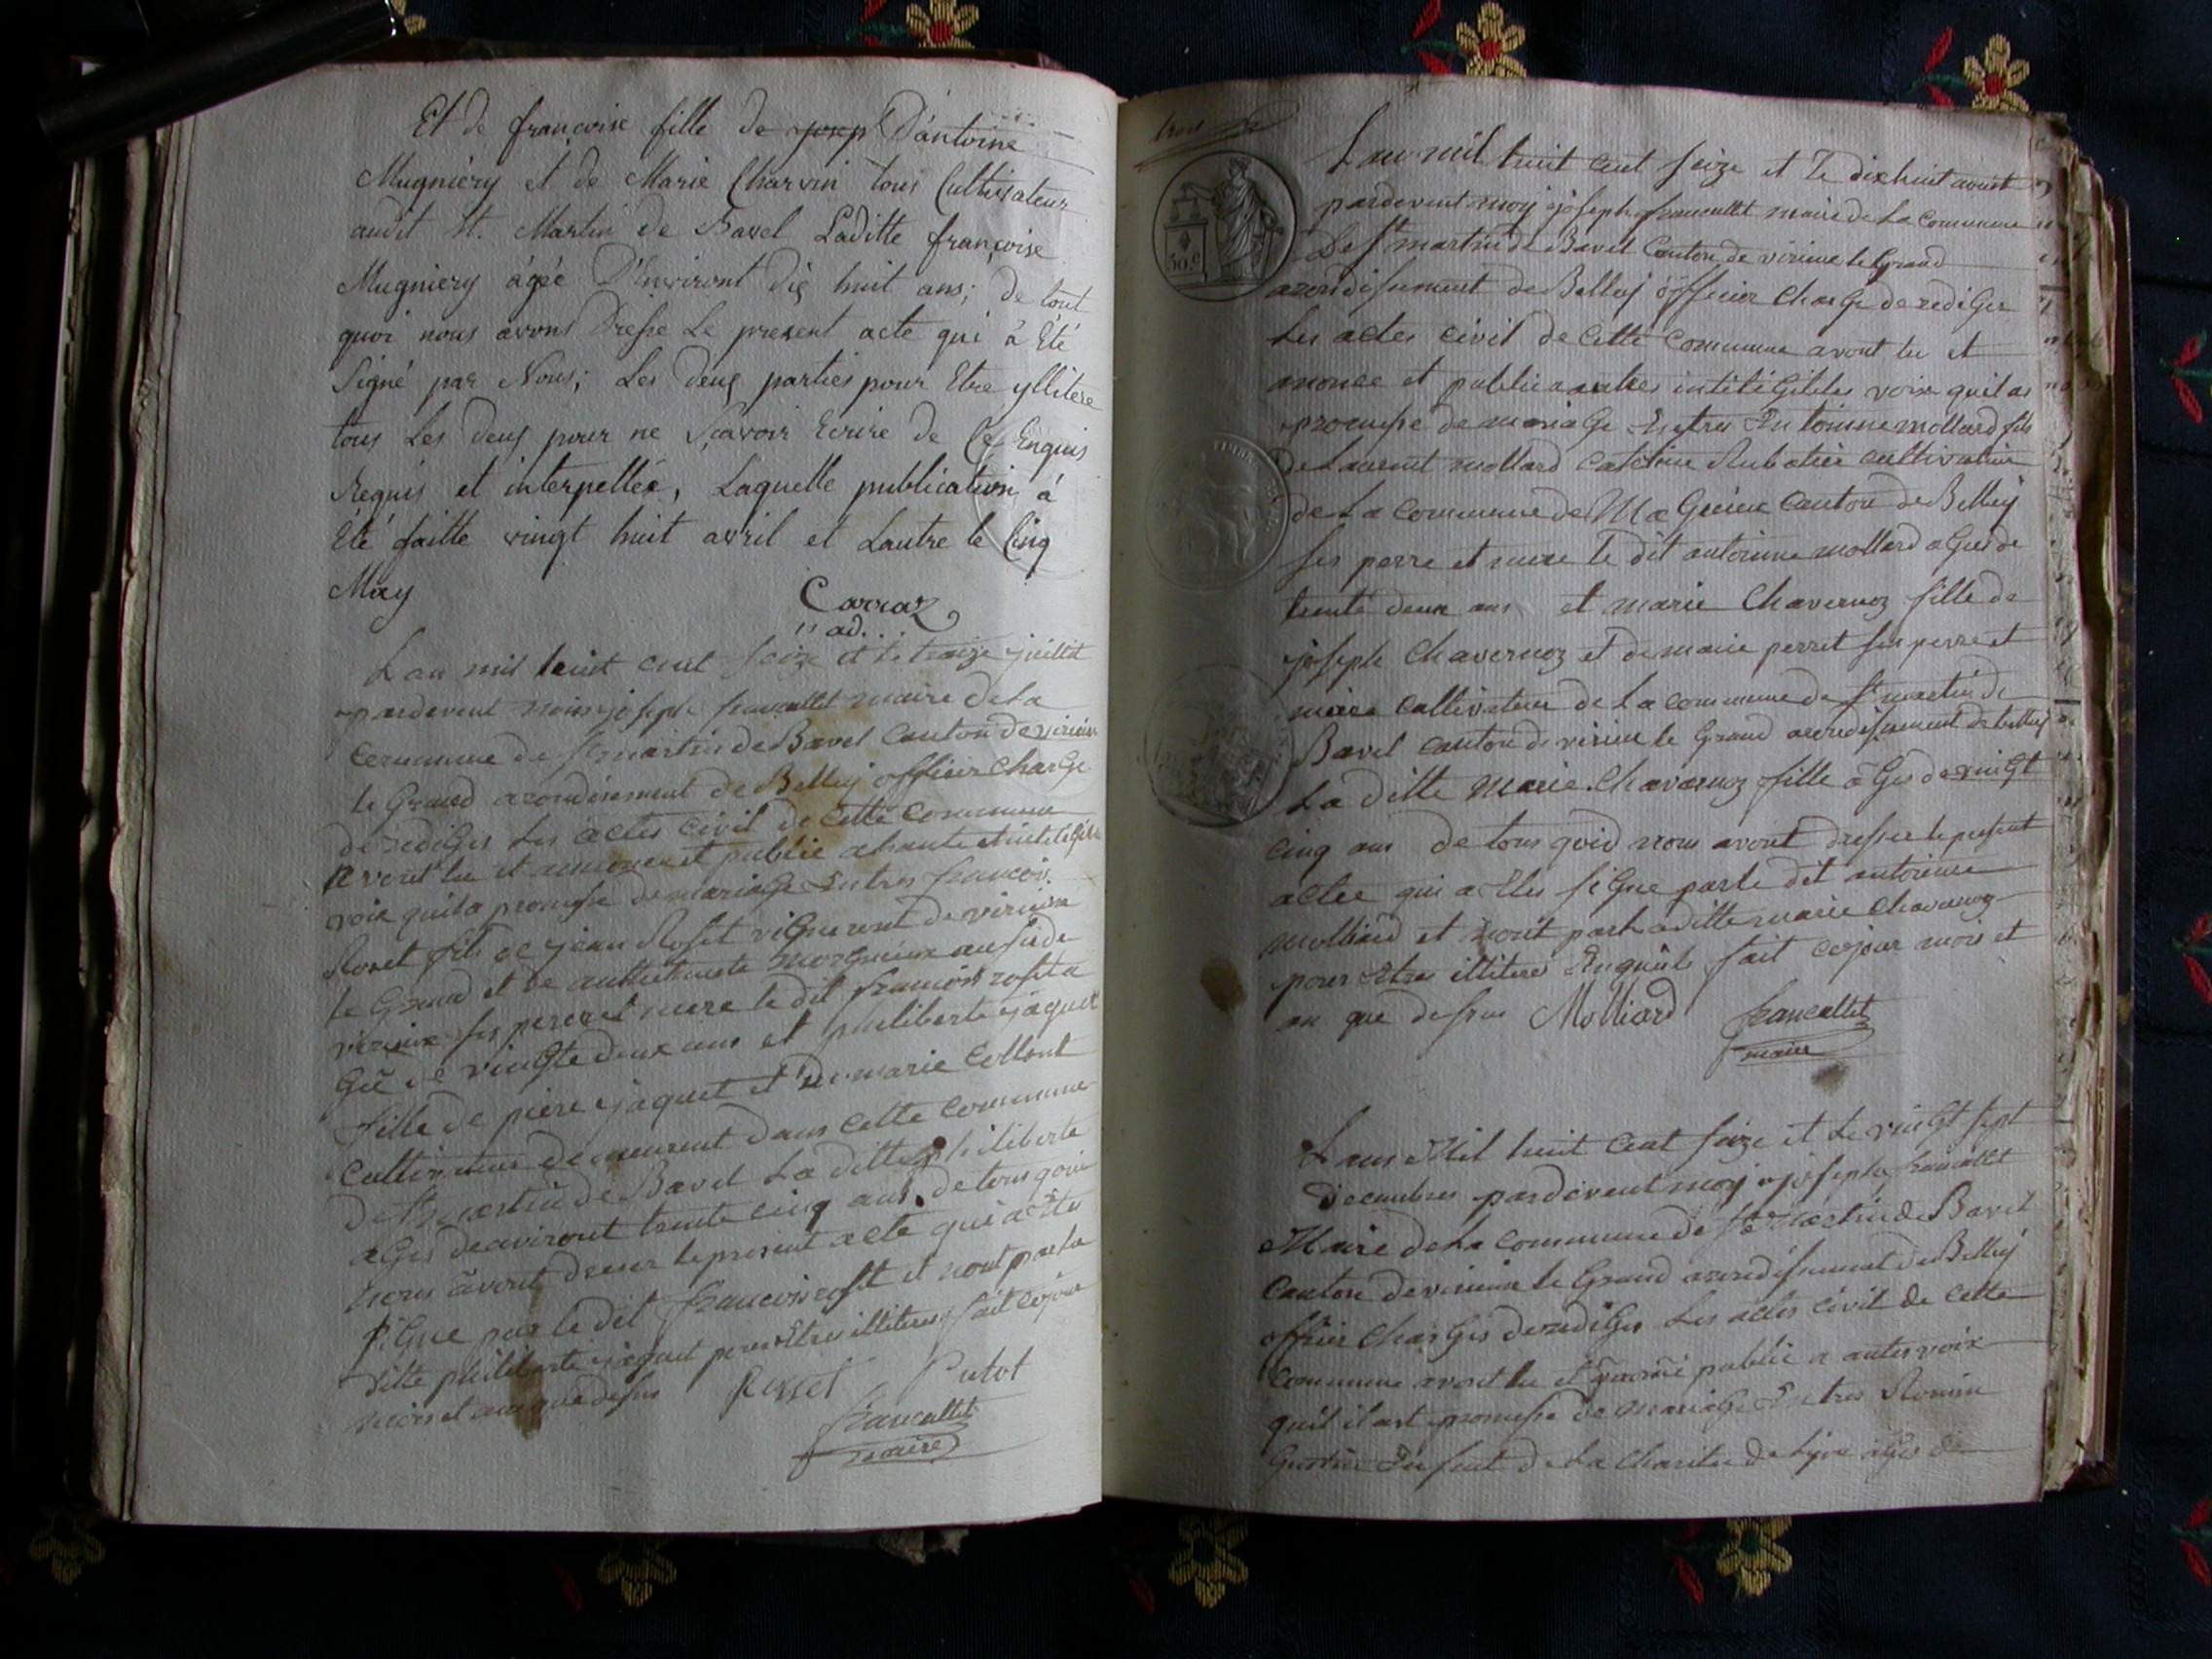 Et de françoise fille de josep D'antoine
Mugniery et de Marie Charvin tous Cultivateur
audit St. Martin de Bavel Laditte françoise
Mugniery âgée D'environt dix huit ans; de tout
quoi nous avons Dressé Le present acte qui à Eté
Signé par Nous; Les deux parties pour Etre yllitere
tous Les deux pour ne Sçavoir Ecrire de Ce Enquis
Requis et interpellée, Laquelle publication à
Eté faitte vingt huit avril et Lautre le Cinq
May
Carraz
ad.
Lan mil huit cent seize et le treize juillet
pardevent nous joseph francallet maire de La
commune de st martin de Bavel Canton de virieux
le Grand arondisement de Belley officier charGe
de rediGer Les actes civil de cette commune
avont lu et annonce et publie a haute et inteligible
voix quil a promesse de mariaGe Entres francois
Roset fils de jean Roset viGneront de virieux
le Grand et de
virieux ses pere et mere le dit francois roset a
Gé de vingte deux ans et philiberte jaquet
fille de piere jaquet et de marie Collont
Cultivateur demeurent dans cette commune
De St martin de Bavel La ditte philiberte
aGes deaviront trente cinq ans. de tous quoi
nous avont dresser le present acte qui a Etes
siGne par le dit francois roset et nont par la
ditte philiberte jaquet pour Etres illiteres fait ce jour
mois et an que desus Rosset Putot
francallet
maire
trois
50.c
Lan mil huit cent seize et Le dixhuit avout
pardevent moy joseph francallet maire de La commune
De st martin de Bavel Canton de virieux le Grand
arondisement de Belley officier CharGe de rediGer
Les actes civil de cette commune avont lu et
anonce et publie a autes inteliGibles voix quil as
promesse de mariaGe Entres Entoinne mollard fils
de Laurent mollard catetrine Rubatier cultivateur
de La commune de MaGnieux canton de Belley
ses perre et mere Le dit antoinne mollard aGes de
trente deux ans et marie Chavernoz fille de
joseph Chavernoz et de marie perret ses perre et
mere cultivateur de La commune de st martin de
Bavel canton de virieu le Grand arrondisement de belley
La ditte marie Chavernoz fille aGes de vingt
cinq ans de tous quoid nous avont dresser le present
actee qui a Etes siGne par le dit antoinne
molliard et nont par La ditte marie chavernoz
pour Etres illiteres Enquils fait ce jour mois et
an que desus Molliard francallet
maire
L ans Mil huit Cent seize et Le vinGt sept
decembres pardevent moy joseph francallet
Maire de La commune de st Martin de Bavel
Canton de virieux le Grand arondisement de Belley
officier CharGes de rediGer Les actes civil de cette
commune avont lu et publie a autes voix
quil il ast promesse de mariaGe Entres Romin
Enfent de La Charitee de Lyon aGes de